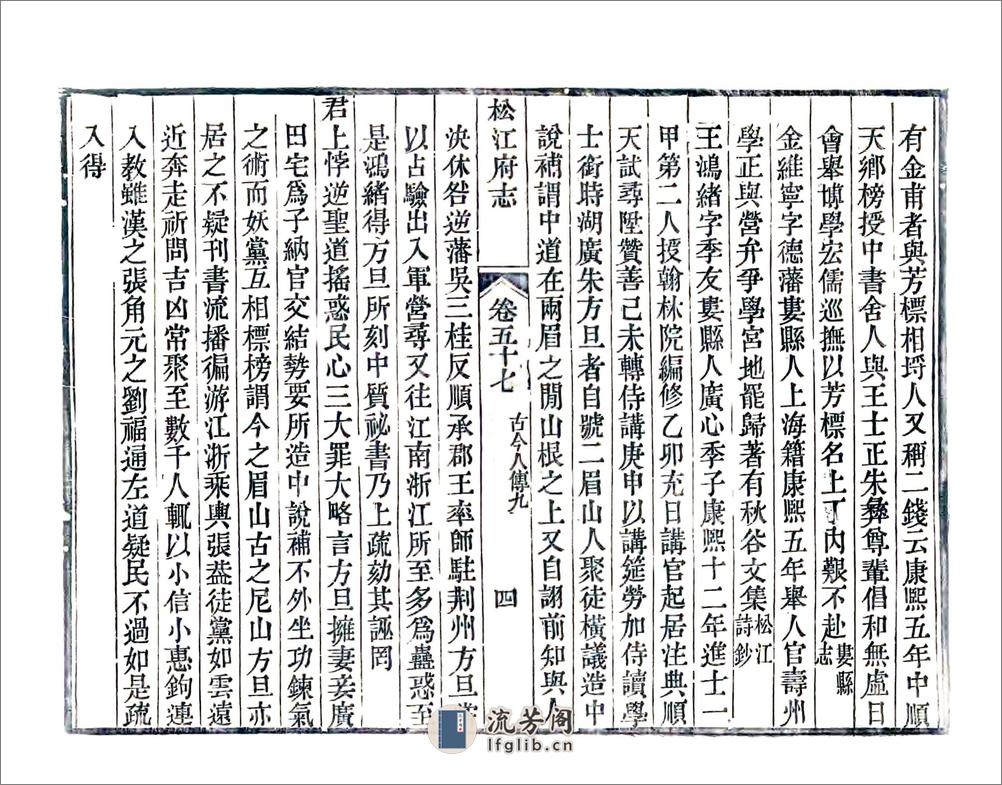 有金甫者與芳標相埒人又稱二錢云康熙五年中順
天鄉榜授中書舍人與王士正朱彝尊輩倡和無虛日
會舉博學宏儒巡撫以芳標名上丁內艱不赴婁縣志
金維寧字德藩婁縣人上海籍康熙五年舉人官壽州
學正與營弁爭學宮地罷歸著有秋谷文集松江詩鈔
王鴻緒字季友婁縣人廣心季子康熙十二年進士一
甲第二人授翰林院編修乙卯充日講官起居注典順
天試尋陞贊善己未轉侍講庚申以講筵勞加侍讀學
士銜時湖廣朱方旦者自號二眉山人聚徒橫議造中
說補謂中道在兩眉之閒山根之上又自詡前知與人
松江府志 卷五十七 古今人傳九 四
決休咎逆藩吳三桂反順承郡王率師駐荆州方旦
以占驗出入軍營尋又往江南浙江所至多為蠱惑至
是鴻緒得方旦所刻中質祕書乃上疏劾其誣罔
君上悖逆聖道搖惑民心三大罪大略言方旦擁妻妾廣
田宅為子納官交結勢要所造中說補不外坐功鍊氣
之術而妖黨互相標榜謂今之眉山古之尼山方旦亦
居之不疑刊書流播徧游江浙乘輿張葢徒黨如雲遠
近奔走祈問吉凶常聚至數千人輒以小信小惠鉤連
入教雖漢之張角元之劉福通左道疑民不過如是疏
入得
流芳阁
lfglib.cn